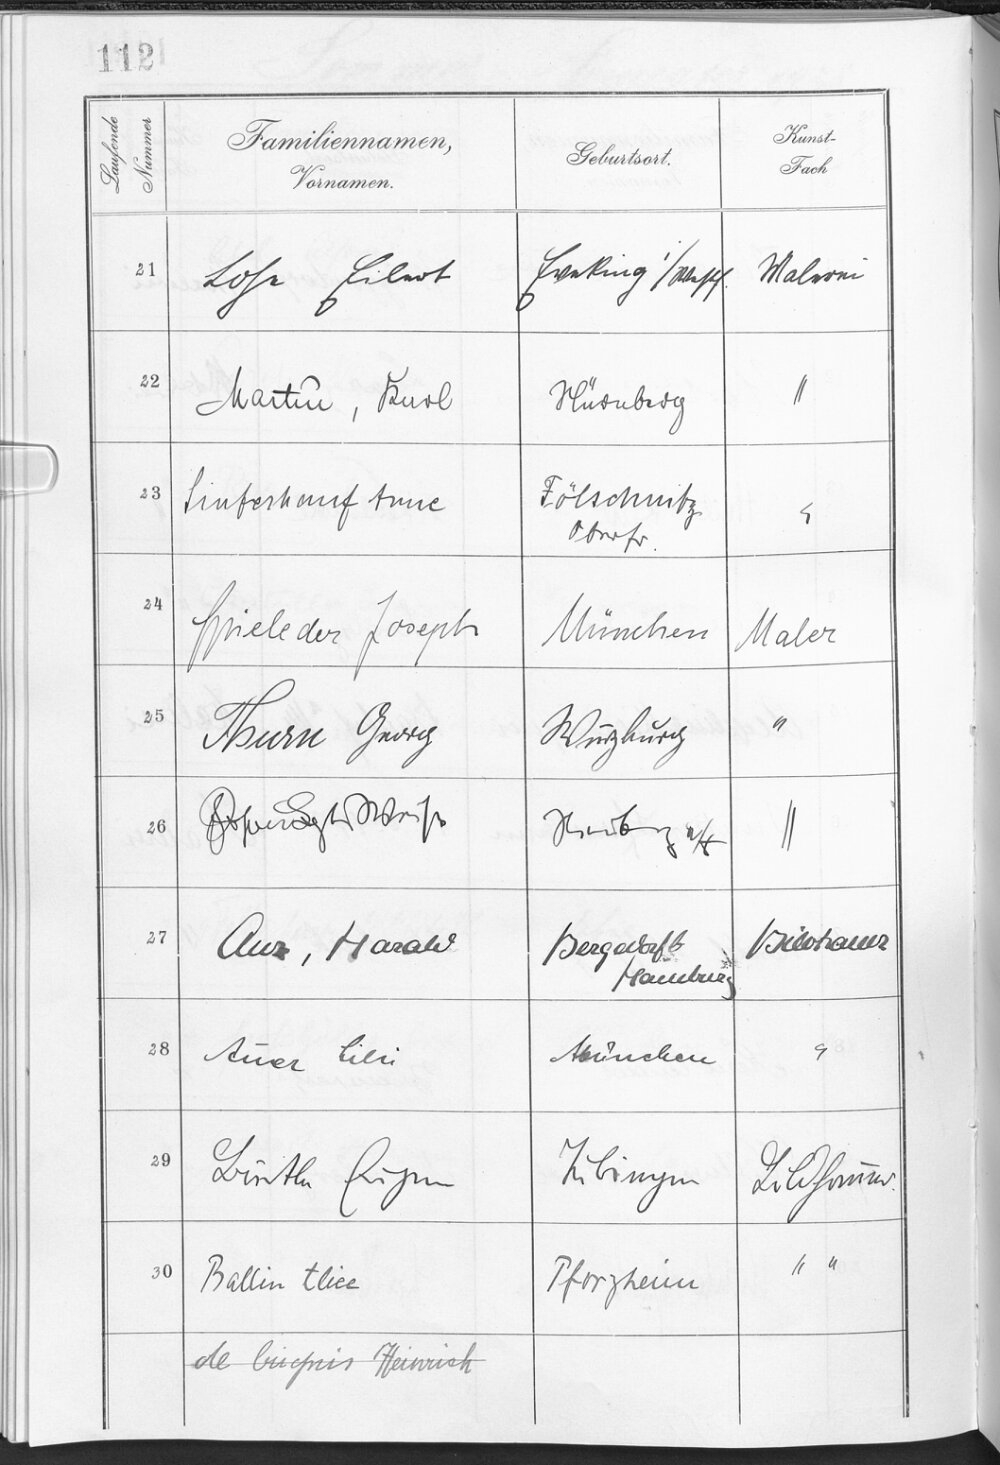 112
Laufende Nummer
Familiennamen, Vornamen.
Geburtsort.
Kunst-Fach
21 Lohe Eilert Eveking i/Westf. Malerei
22 Martin, Karl Nürnberg "
23 Anne Fölschnitz Oberfr. "
24 Spieleder Joseph München Maler
25 Thurn Georg Würzburg "
26 "
27 Aur, Harald Bergedorf b Hamburg Bildhauer
28 Auer Lili München "
29 Eugen Tübingen Bildhauer.
30 Ballin Alice Pforzheim " "
de Heinrich